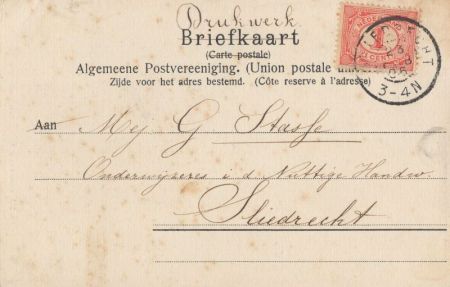 Drukwerk
Briefkaart
(Carte postale)
Algemeene Postvereeniging. (Union postale
Zijde voor het adres bestemd. (Côte reserve à l'adresse)
3-4N
Aan Mej G Stasse
Onderwijzeres i. d. Nuttige Handw.
Sliedrecht